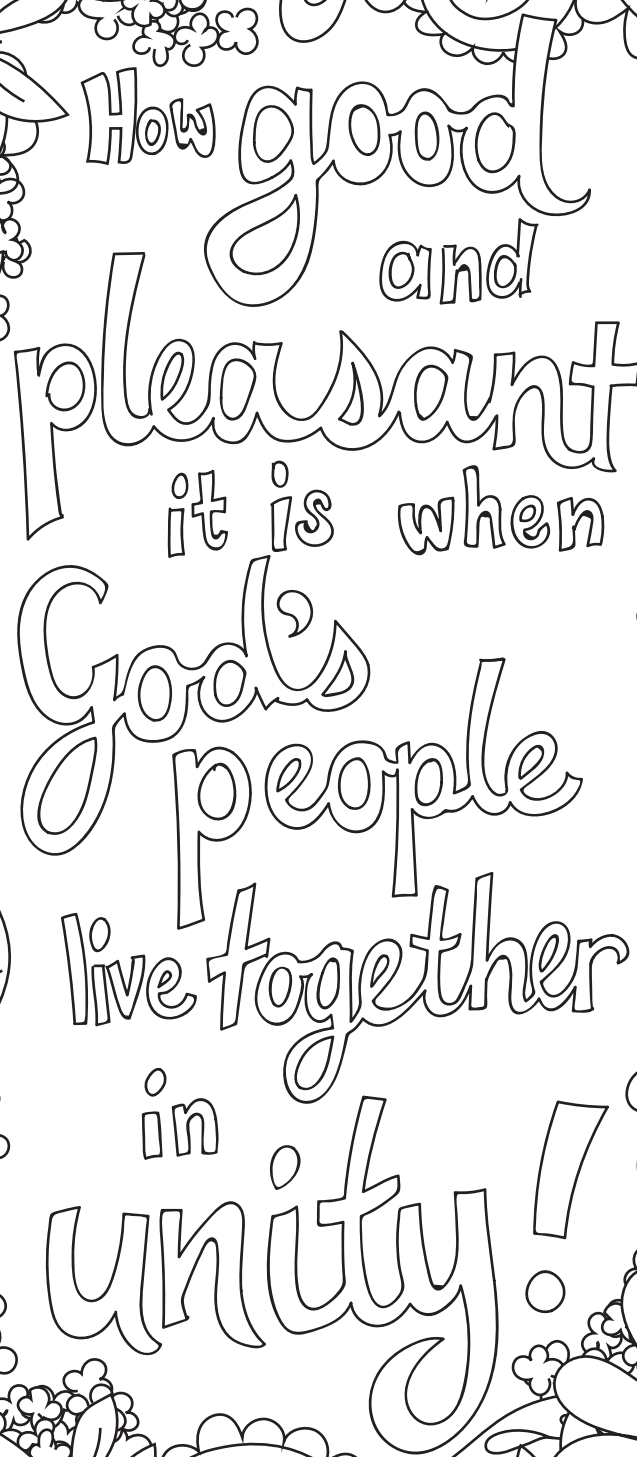 How good
and
pleasant
it is when
God's
people
live together
in
unity!